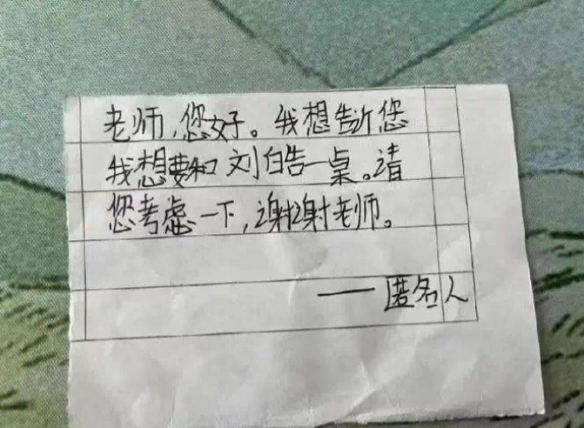 老师,您好。我想告诉您
我想要和刘皓一桌。请
您考虑一下,谢谢老师。
——匿名人